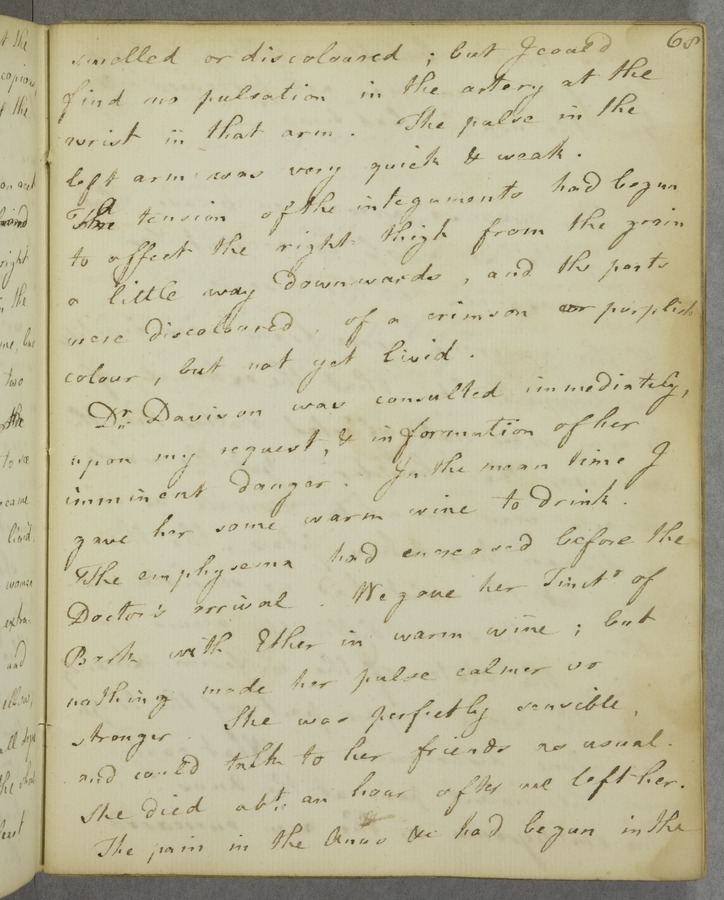 68
smelled or discoloured ; but I could
find no pulsation in the artery at the
wrist in that arm . The pulse in the
left arm was very quick & weak .
The tension of the integuments had begun
to affect the right thigh from the groin
a little way downwards , and the parts
were discoloured , of a crimson or purplish
colour , but not yet livid .
Dr. Davison was consulted immediately,
upon my request, & information of her
imminent danger . In the mean time I
gave her some warm wine to drink .
The emphysema had encreased before the
Doctor's arrival . We gave her Tinctr of
Bark with Ether in warm wine ; but
nothing made her pulse calmer or
stronger . She was perfectly sensible ,
and could talk to her friends as usual .
She died abt. an hour after we left her .
The pain in the Anus &c had begun in the